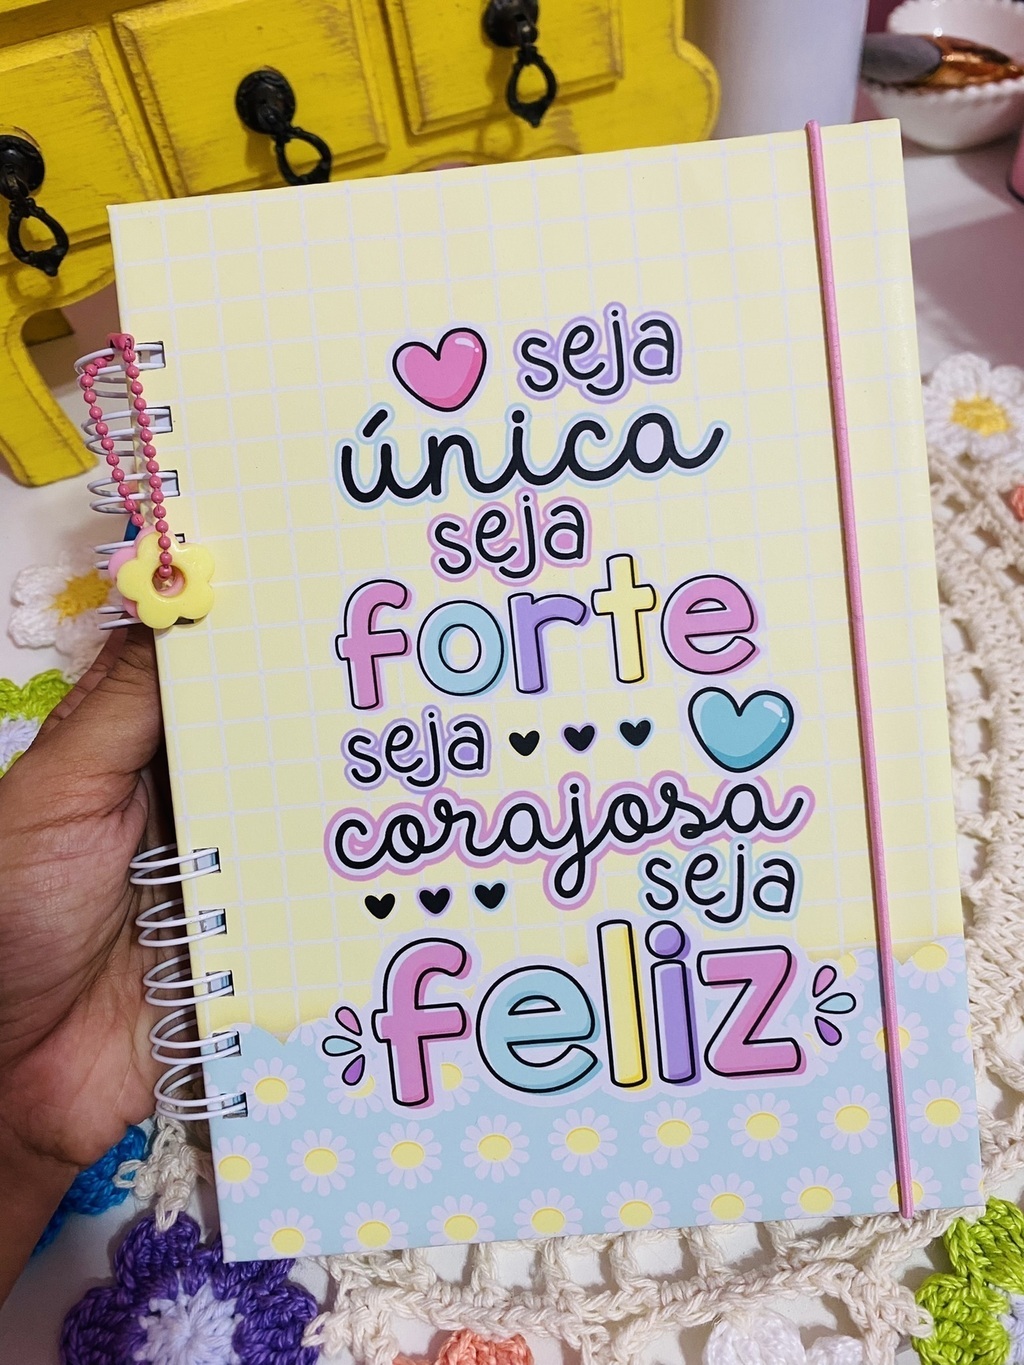 seja
única
seja
forte
seja
corajosa
seja
feliz